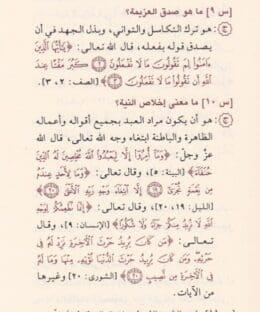 [س ٩] ما هو صدق العزيمة؟
ج: هو ترك التكاسل والتواني، وبذل الجهد في أن
يصدق قوله بفعله، قال الله تعالى: ﴿يَٰٓأَيُّهَا ٱلَّذِينَ
ءَامَنُوا۟ لِمَ تَقُولُونَ مَا لَا تَفْعَلُونَ ۝ كَبُرَ مَقْتًا عِندَ
ٱللَّهِ أَن تَقُولُوا۟ مَا لَا تَفْعَلُونَ ۝﴾ [الصف: ٢، ٣].
[س ١٠] ما معنى إخلاص النية؟
ج: هو أن يكون مراد العبد بجميع أقواله وأعماله
الظاهرة والباطنة ابتغاء وجه الله تعالى، قال الله
عزّ وجلّ: ﴿وَمَآ أُمِرُوٓا۟ إِلَّا لِيَعْبُدُوا۟ ٱللَّهَ مُخْلِصِينَ لَهُ ٱلدِّينَ
حُنَفَآءَ﴾ [البينة: ٥]، وقال تعالى: ﴿وَمَا لِأَحَدٍ عِندَهُۥ
مِن نِّعْمَةٍ تُجْزَىٰٓ ۝ إِلَّا ٱبْتِغَآءَ وَجْهِ رَبِّهِ ٱلْأَعْلَىٰ ۝﴾
[الليل: ١٩، ٢٠]، وقال تعالى: ﴿إِنَّمَا نُطْعِمُكُمْ لِوَجْهِ
ٱللَّهِ لَا نُرِيدُ مِنكُمْ جَزَآءً وَلَا شُكُورًا﴾ [الإنسان: ٩]، وقال
تعالى: ﴿مَن كَانَ يُرِيدُ حَرْثَ ٱلْءَاخِرَةِ نَزِدْ لَهُۥ فِى
حَرْثِهِۦ وَمَن كَانَ يُرِيدُ حَرْثَ ٱلدُّنْيَا نُؤْتِهِۦ مِنْهَا وَمَا لَهُۥ
فِى ٱلْءَاخِرَةِ مِن نَّصِيبٍ ۝﴾ [الشورى: ٢٠] وغيرها
من الآيات.